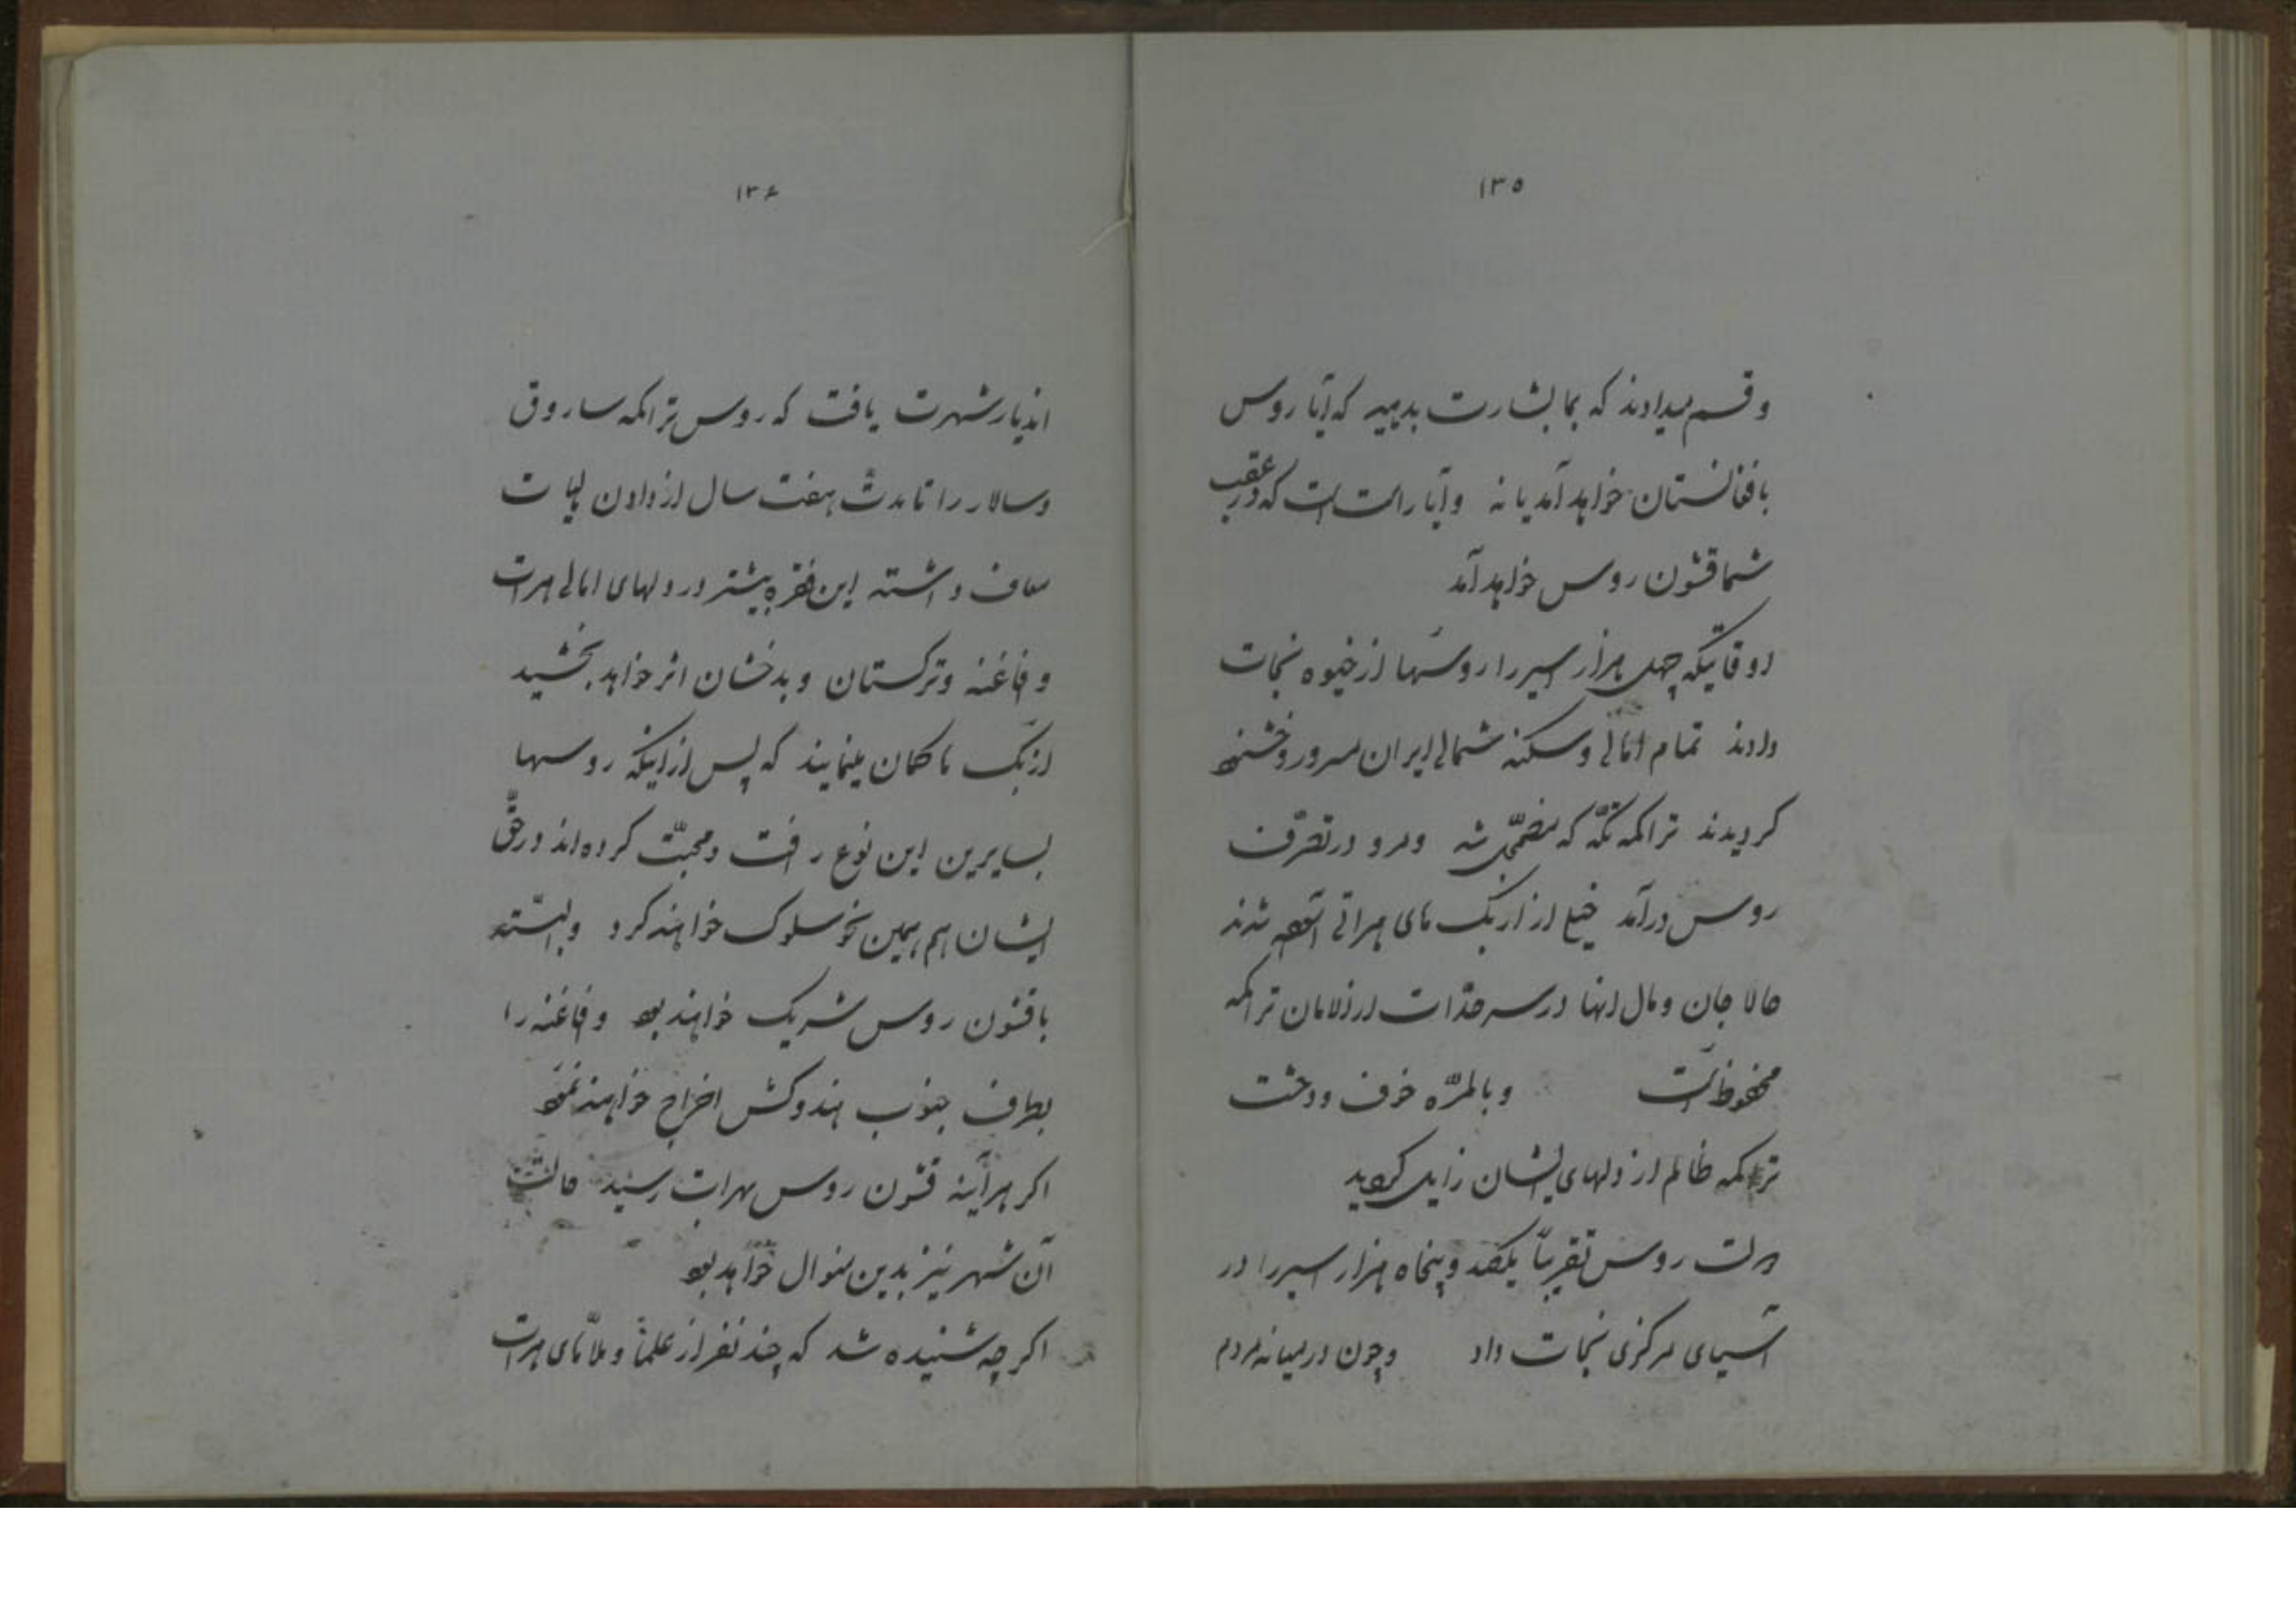 ۱۳۵
و قسم میدادند که بما بشارت بدهید که آیا روس
بافغانستان خواهد آمد یا نه و آیا راست است که در عقب
شما قشون روس خواهد آمد
اوقاتیکه چهل هزار اسیر را روسها از خیوه نجات
دادند تمام اهالی و سکنه شمالی ایران مسرور و خشنود
کردیدند تراکمه تکّه که مضمحل شد و مرو در تصرّف
روس درآمد خیلی از ازبک های هراتی آسوده شدند
حالا جان و مال انها در سرحدّات از الامان تراکمه
محفوظ است و بالمرّه خوف و وحشت
تراکمه ظالم از دلهای ایشان زایل کردید
دولت روس تقریباً یکصد و پنجاه هزار اسیر را در
آسیای مرکزی نجات داد و چون در میانه مردم
۱۳۶
اندیار شهرت یافت که روس تراکمه ساروق
و سالار را تا مدت هفت سال از دادن مالیات
معاف داشته این فقره بیشتر در دلهای اهالی هرات
و افاغنه و ترکستان و بدخشان اثر خواهد بخشید
ازبک ها کمان مینمایند که پس از اینکه روسها
بسایرین این نوع رافت و محبّت کرده اند در حقّ
ایشان هم بهمین نحو سلوک خواهند کرد و البتّه
با قشون روس شریک خواهند بود و افاغنه را
بطرف جنوب هندوکش اخراج خواهند نمود
اکر هرآینه قشون روس بهرات رسید حالت
آن شهر نیز بدین منوال خواهد بود
اکرچه شنیده شد که چند نفر از علما و ملّاهای هرات